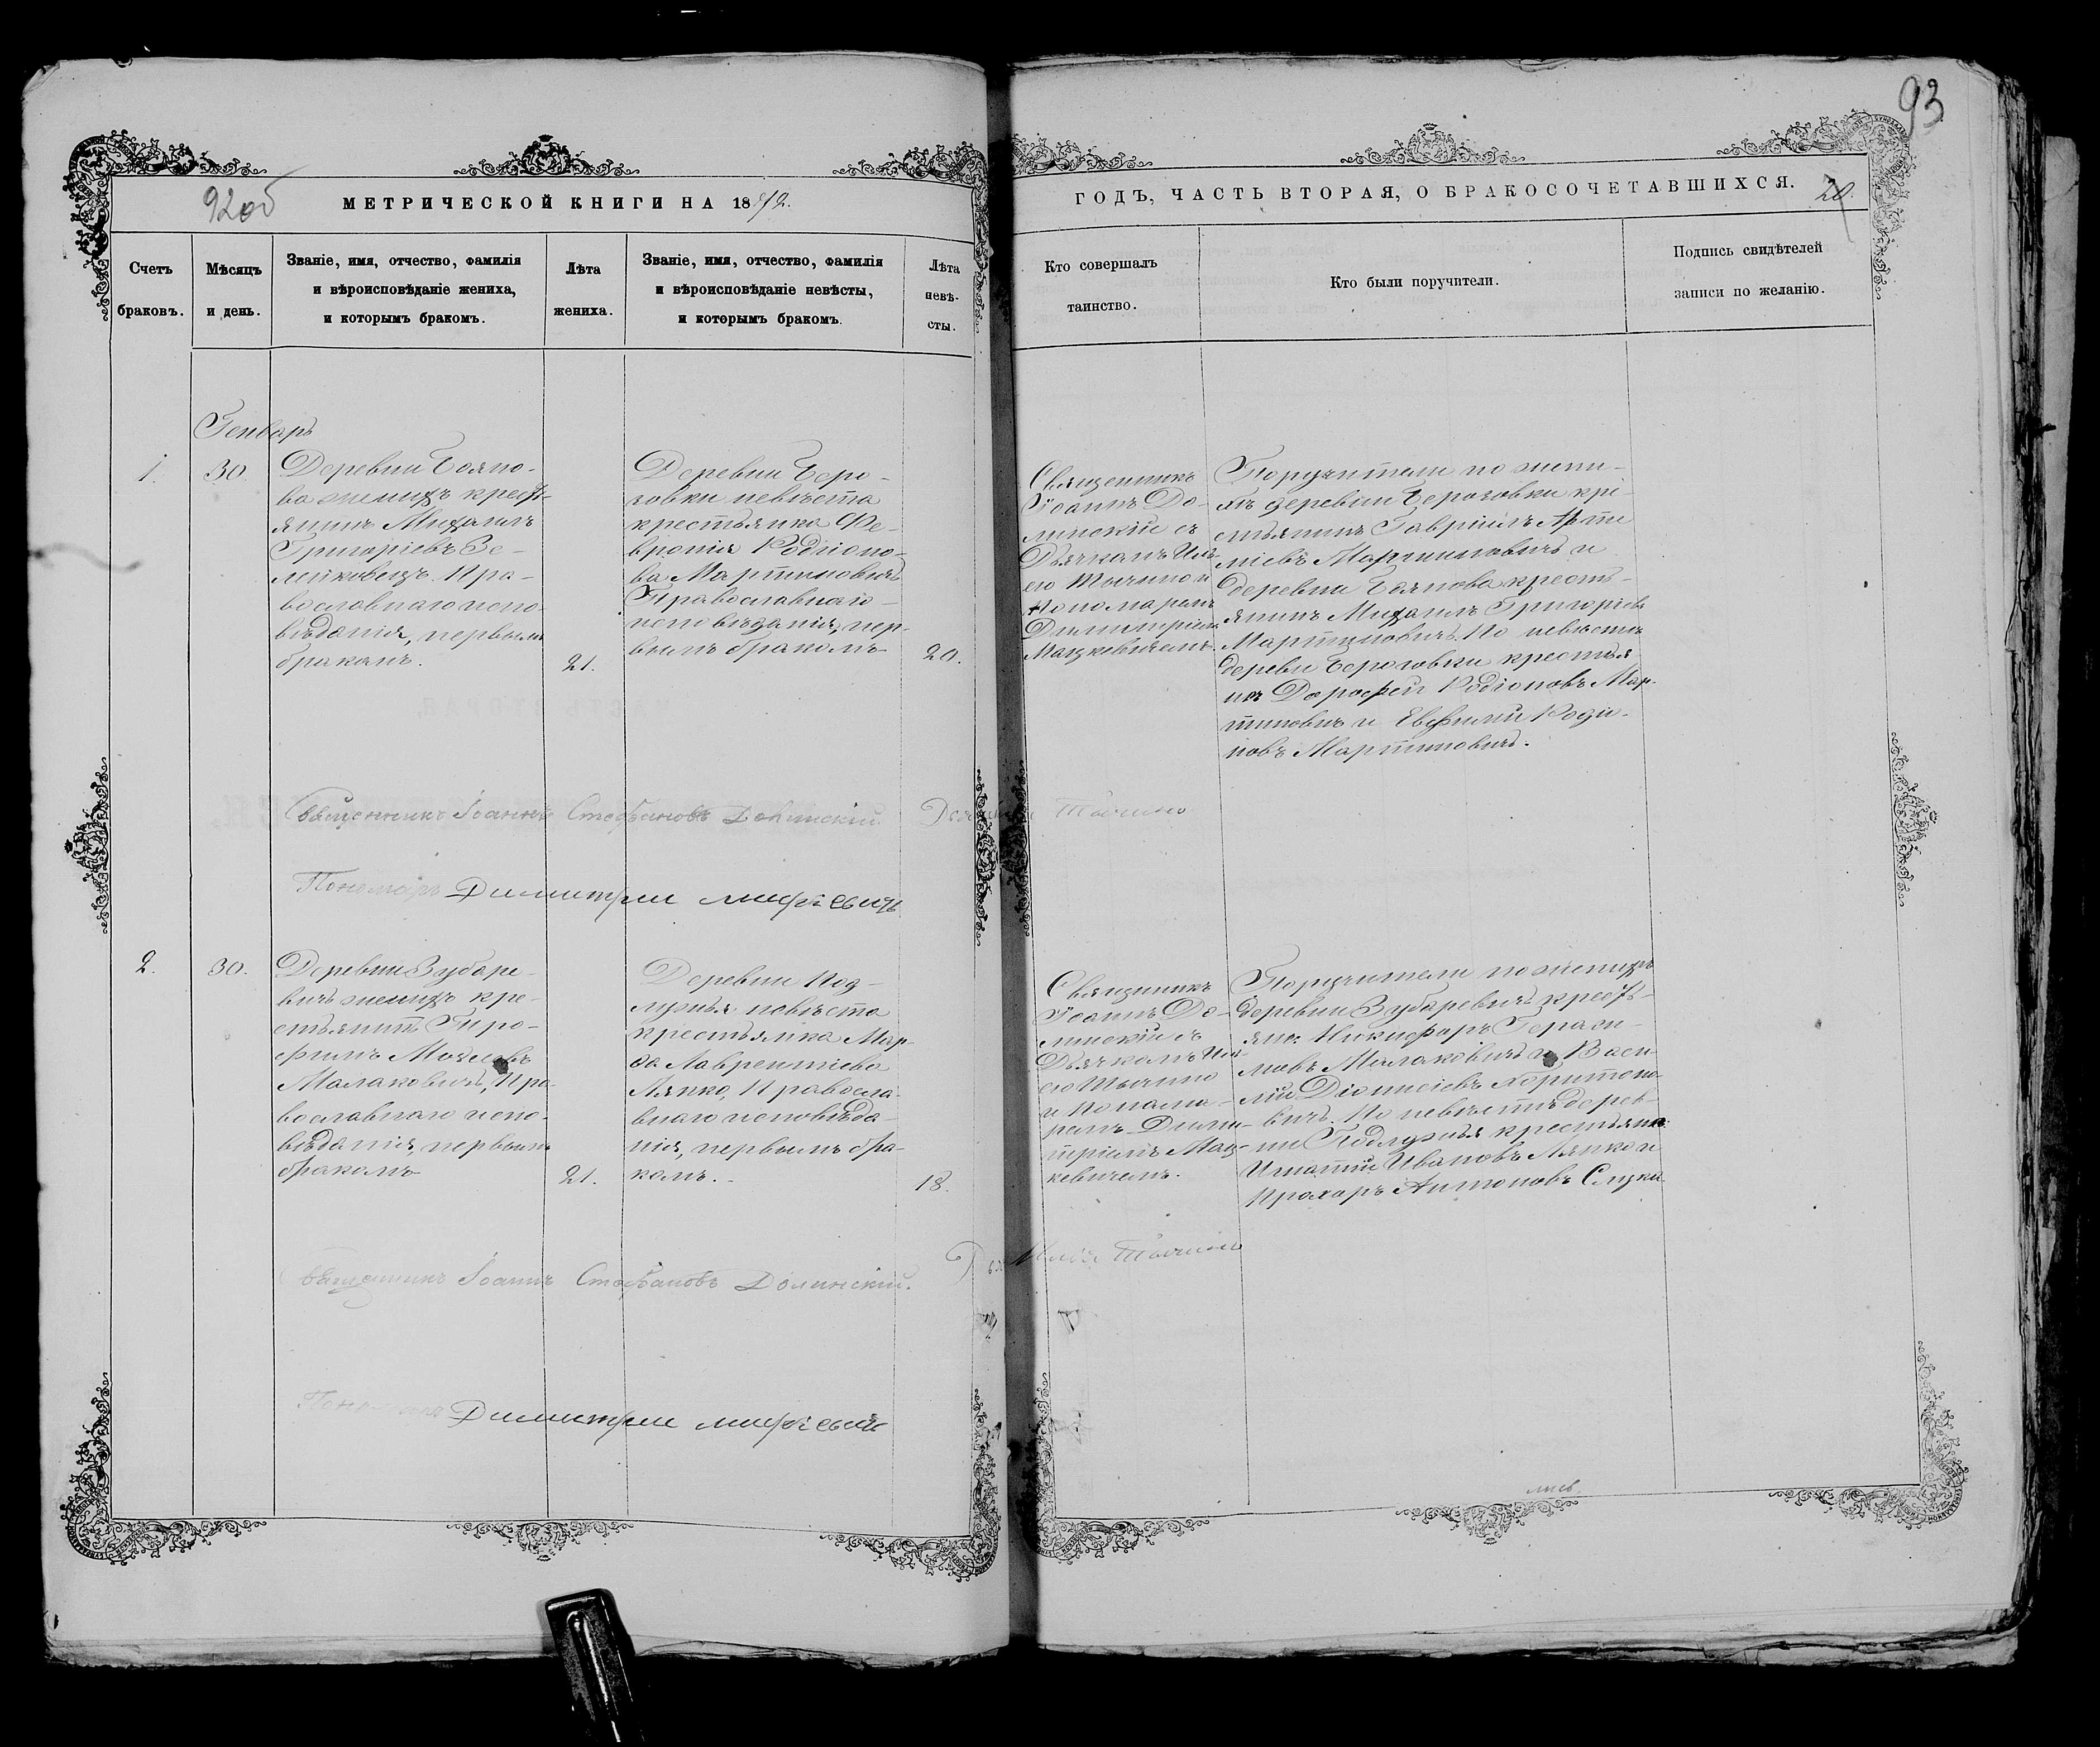 93
92об
МЕТРИЧЕСКОЙ КНИГИ НА 1872.
ГОДЪ, ЧАСТЬ ВТОРАЯ, О БРАКОСОЧЕТАВШИХСЯ.
20.
Счетъ
браковъ.
Мѣсяцъ
и день.
Званіе, имя, отчество, фамилія
и вѣроисповѣданіе жениха,
и которымъ бракомъ.
Лѣта
жениха.
Званіе, имя, отчество, фамилія
и вѣроисповѣданіе невѣсты,
и которымъ бракомъ.
Лѣта
невѣ-
сты.
Кто совершалъ
таинство.
Кто были поручители.
Подпись свидѣтелей
записи по желанію.
Генваръ
1.
30
Деревни Бояно-
ва женихъ крестъ-
янинъ Михаилъ
Григоріевъ Зе-
Пра-
вославнаго испо-
вѣданія, первымъ
бракомъ.
21.
Деревни Беро-
зовки невѣста
крестьянка Фе-
вронія Родіоно-
ва Мартиновичъ
Православнаго
исповѣданія, пер-
вымъ бракомъ
20.
Священникъ
Іоаннъ До-
линскій съ
Дьячкомъ Иль-
ею Тычино и
Пономаремъ
Димитріемъ
Мацкевичемъ.
Поручители по жени-
хѣ деревни Берозовки кре-
стьянинъ Гавріилъ
Мартиновичъ и
деревни Боянова кресть-
янинъ Михаилъ Григоріевъ
Мартиновичъ. По невѣстѣ
деревн Берозовки крестья
не Дорофей Родіоновъ Мар-
тиновичъ и Евфимій Родіо-
новъ Мартиновичъ.
Священникъ Іоаннъ Стефановъ Долинскій. Тычино
Пономарь Димитри
2.
30.
Деревни Зубаре-
вичъ женихъ кре-
стьянинъ Тро-
фимъ
Малаховичъ, Пра-
вославнаго испо-
вѣданія, первымъ
бракомъ
21.
Деревни Под-
лужья невѣста
крестьянка Мар-
ѳа Лаврентіева
Ляпко, Правосла-
внаго исповѣда-
нія, первымъ бра-
комъ.
18.
Священникъ
Іоаннъ До-
линскій съ
Дьячкомъ Иль-
ею Тычино
и Понама-
ремъ Дими-
тріемъ Мац-
кевичемъ.
Поручители по женихѣ
деревни Зубаревичъ кресть-
яне: Никифоръ Гераси-
мовъ Малаховичъ и Васи-
лій Діонисіевъ Харитоно-
вичъ. По невѣстѣ дерев-
ни Подлужья крестьяне
Игнатій Ивановъ Ляпко и
Прохоръ Антоновъ
Священникъ Іоаннъ Стефановъ Долинскій. Илія Тычино
Димитри